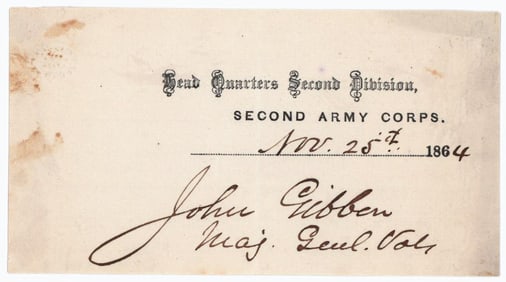 Head Quarters Second Division,
SECOND ARMY CORPS.
Nov. 25th 1864
John Gibbon
Maj. Genl. Vols